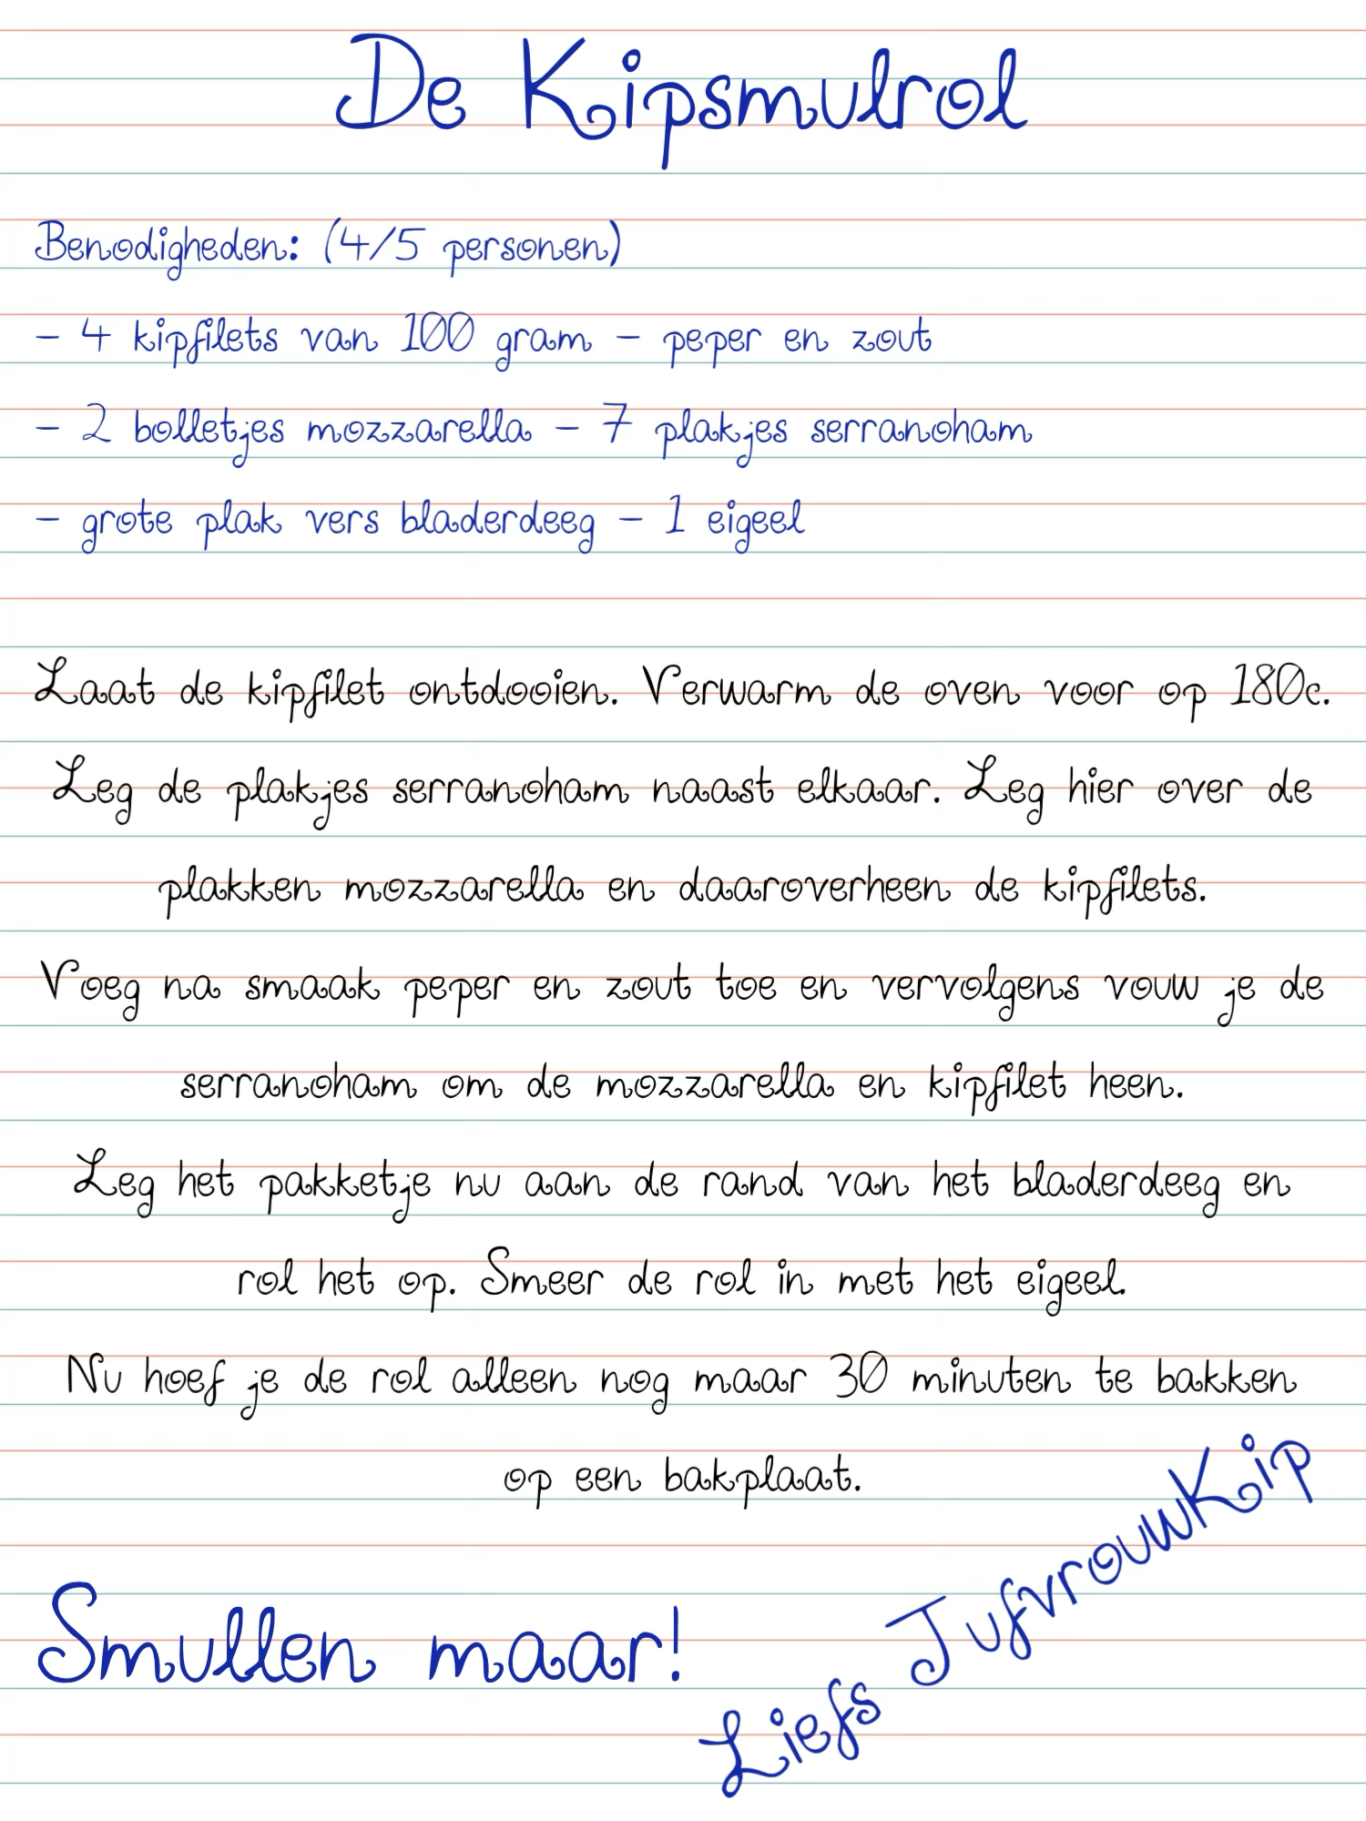 De Kipsmulrol
Benodigheden: (4/5 personen)
- 4 kipfilets van 100 gram - peper en zout
- 2 bolletjes mozzarella - 7 plakjes serranoham
- grote plak vers bladerdeeg - 1 eigeel
Laat de kipfilet ontdooien. Verwarm de oven voor op 180c.
Leg de plakjes serranoham naast elkaar. Leg hier over de
plakken mozzarella en daaroverheen de kipfilets.
Voeg na smaak peper en zout toe en vervolgens vouw je de
serranoham om de mozzarella en kipfilet heen.
Leg het pakketje nu aan de rand van het bladerdeeg en
rol het op. Smeer de rol in met het eigeel.
Nu hoef je de rol alleen nog maar 30 minuten te bakken
op een bakplaat.
Smullen maar!
Liefs JufvrouwKip